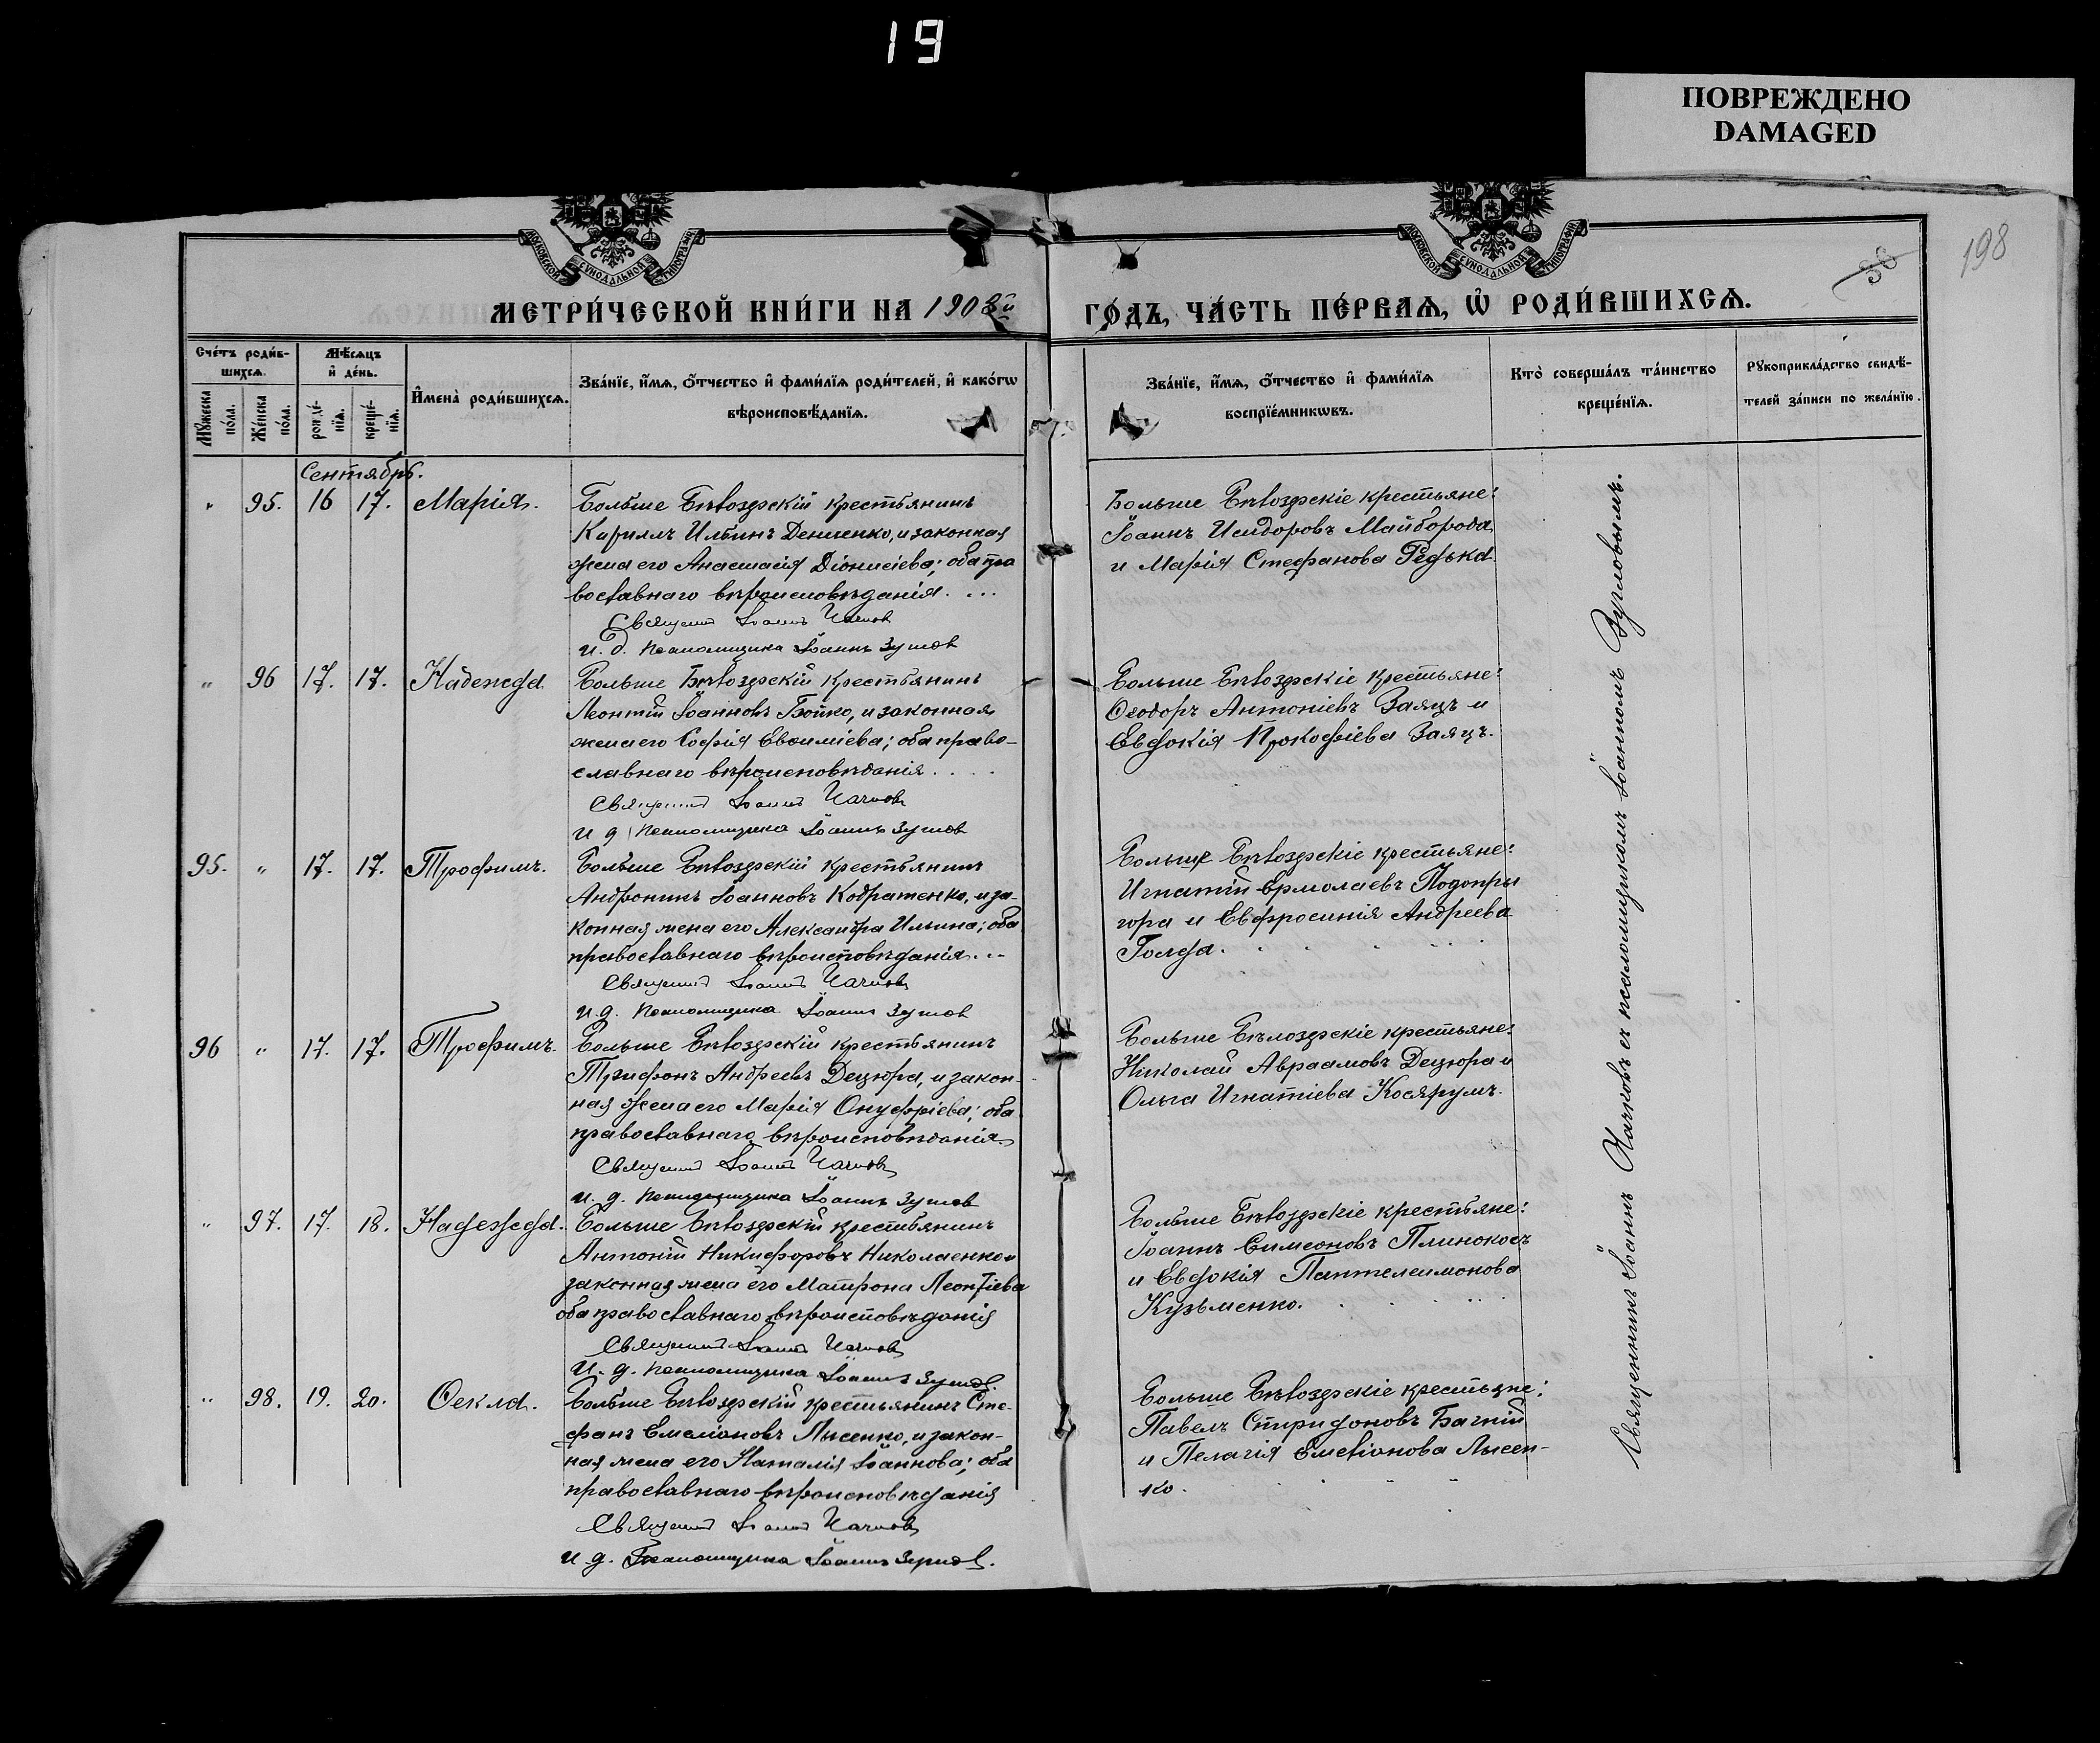 19
ПОВРЕЖДЕНО
DAMAGED
198
38
МОСКОВСКОЙ СѴНОДАЛЬНОЙ ТИПОГРАФІИ
МОСКОВСКОЙ СѴНОДАЛЬНОЙ ТИПОГРАФІИ
МЕТРИ́ЧЕСКОЙ КНИ́ГИ НА 1908й
ГО́ДЪ, ЧА́СТЬ ПЕ́РВАѦ, Ѡ҆ РОДИ́ВШИХСѦ.
Сче́тъ роди́в-
шихсѧ.
Мꙋ́жеска по́ла.
Же́нска по́ла.
Мѣ́сѧцъ
и҆ де́нь.
рожде́-
нїѧ.
креще́-
нїѧ.
И҆мена̀ роди́вшихсѧ.
Зва́нїе, и҆́мѧ, ѻ҆́тчество и҆ фами́лїѧ роди́телей, и҆ како́гѡ
вѣроисповѣ́данїѧ.
Зва́нїе, и҆́мѧ, ѻ҆́тчество и҆ фами́лїѧ
воспрїе́мникѡвъ.
Кто̀ соверша́лъ та́инство
креще́нїѧ.
Рꙋкоприкла́дство свидѣ́-
телей за́писи по жела́нїю.
Сентябрь.
" 95. 16 17. Марія.
Больше Бѣлозерскій крестьянинъ
Кириллъ Ильинъ Денисенко, и законная
жена его Анастасія Діонисіева; оба пра
вославнаго вѣроисповѣданія. ...
Священникъ Іоаннъ
и. д. псаломщика Іоаннъ
Больше Бѣлозерскіе крестьяне:
Іоаннъ Исидоровъ Майборода
и Марія Стефанова Редька.
" 96 17. 17. Надежда
Больше Бѣлозерскій крестьянинъ
Леонтій Іоанновъ Бойко, и законная
жена его Софія Евѳиміева; оба право-
славнаго вѣроисповѣданія. ...
Священникъ Іоаннъ
и д псаломщика Іоаннъ
Больше Бѣлозерскіе крестьяне:
Ѳеодоръ Антоніевъ Заяцъ и
Евдокія Прокофіева Заяцъ.
95. " 17. 17. Трофимъ.
Больше Бѣлозерскій крестьянинъ
Андроникъ Іоанновъ Кодратенко, и за-
конная жена его Александра Ильина; оба
православнаго вѣроисповѣданія...
Священникъ Іоаннъ
и. д. псаломщика Іоаннъ
Больше Бѣлозерскіе крестьяне:
Игнатій Ермолаевъ Подопры
гора и Евфросинія Андреева
Голда.
96 " 17. 17. Трофимъ.
Больше Бѣлозерскій крестьянинъ
Трифонъ Андреевъ Децюра, и закон-
ная жена его Марія Онуфріева; оба
православнаго вѣроисповѣданія
Священникъ Іоаннъ
и. д. псаломщика Іоаннъ
Больше Бѣлозерскіе крестьяне:
Николай Авраамовъ Децюра и
Ольга Игнатіева Косярумъ.
" 97. 17. 18. Надежда.
Больше Бѣлозерскій крестьянинъ
Антоній Никифоровъ Николаенко и
законная жена его Матрона Леонтіева
оба православнаго вѣроисповѣданія
Священникъ Іоаннъ
и. д. псаломщика Іоаннъ
Больше Бѣлозерскіе крестьяне:
Іоаннъ Симеоновъ Плинокосъ
и Евдокія Пантелеимонова
Кузьменко.
" 98. 19. 20. Ѳекла.
Больше Бѣлозерскій крестьянинъ Сте-
фанъ Емеліановъ Лысенко, и закон-
ная жена его Наталія Іоаннова; оба
православнаго вѣроисповѣданія
Священникъ Іоаннъ
и. д. Псаломщика Іоаннъ
Больше Бѣлозерскіе крестьяне:
Павелъ Спиридоновъ Багній
и Пелагія Емеліанова Лысен-
ко.
Священникъ Іоаннъ съ псаломщикомъ Іоанномъ